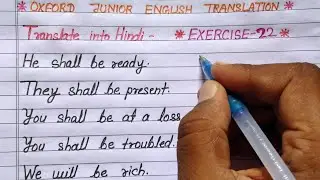 * OXFORD JUNIOR ENGLISH TRANSLATION *
Translate into Hindi - * EXERCISE-22 *
He shall be ready.
They shall be present.
You shall be at a loss
You shall be troubled.
We will be rich.